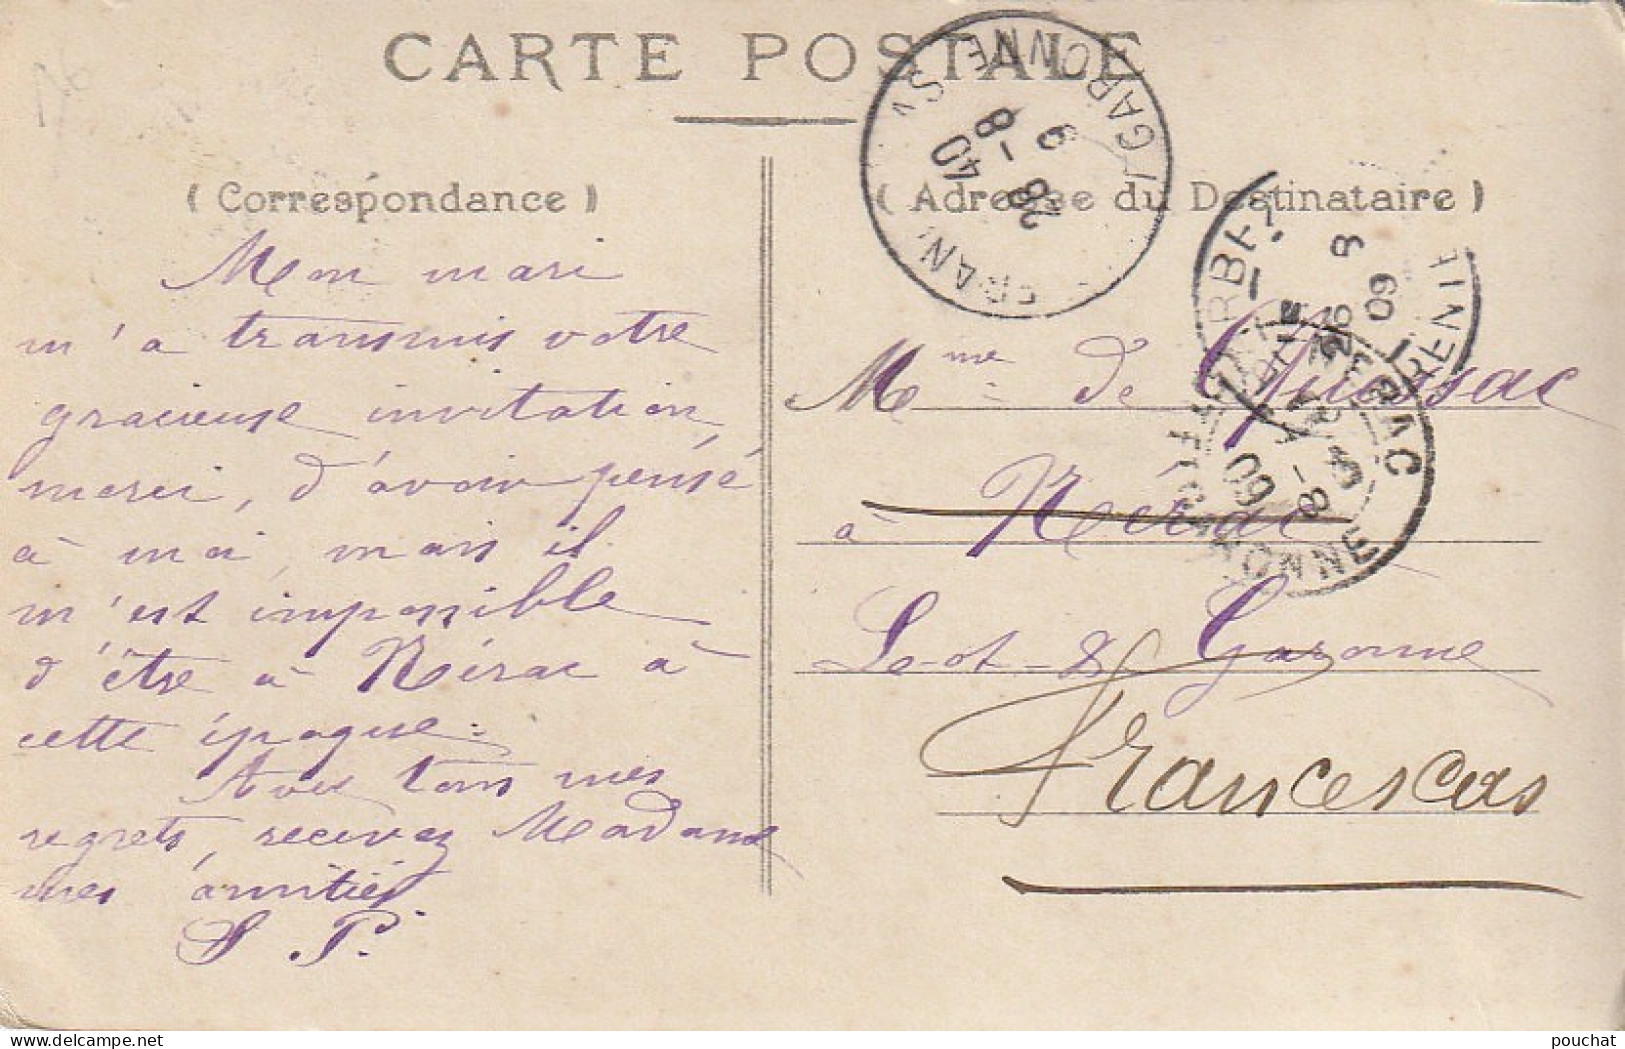 CARTE POSTALE
( Correspondance )
Mon mari
m'a transmis votre
gracieuse invitation
merci, d'avoir pensé
à moi, mais il
m'est impossible
d'être à Nérac à
cette époque.
Avec tous mes
regrets, recevez Madame
mes amitiés
S. P.
( Adresse du Destinataire )
Mme de
à Nérac
Lot-&-Garonne
Francescas
GARONNE
8-40
28
9
26
8
09
NERAC
GARONNE
09
pouchat